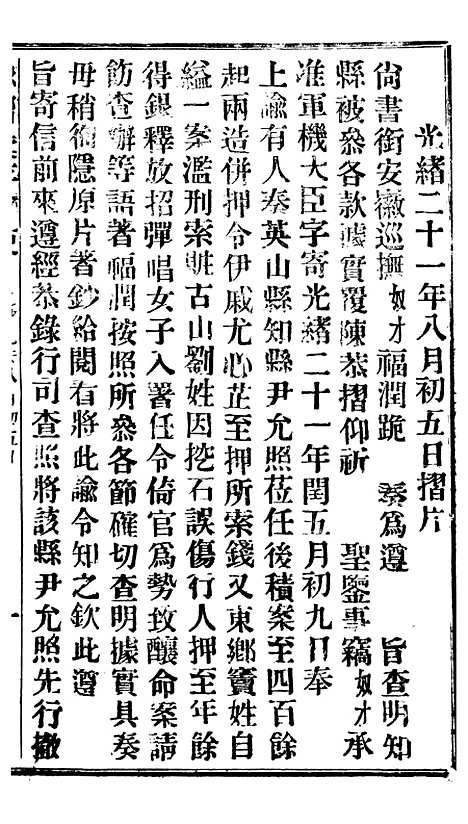 光緒二十一年八月初五日摺片
尙書銜安徽巡撫奴才福潤跪 奏為遵 旨查明知
縣被叅各款據實覆陳恭摺仰祈 聖鑒事竊奴才承
准軍機大臣字寄光緒二十一年閏五月初九日奉
上諭有人奏英山縣知縣尹允照莅任後積案至四百餘
起兩造併押令伊戚尤心芷至押所索錢又東鄉竇姓自
縊一案濫刑索賍古山劉姓因挖石誤傷行人押至年餘
得銀釋放招彈唱女子入署任令倚官為勢致釀命案請
飭查辦等語著福潤按照所叅各節確切查明據實具奏
毋稍徇隱原片著鈔給閱看將此諭令知之欽此遵
旨寄信前來遵經恭錄行司查照將該縣尹允照先行撤
一